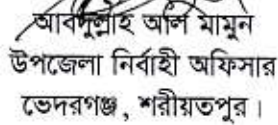 আবদুল্লাহ আল মামুন
উপজেলা নির্বাহী অফিসার
ভেদরগঞ্জ, শরীয়তপুর।